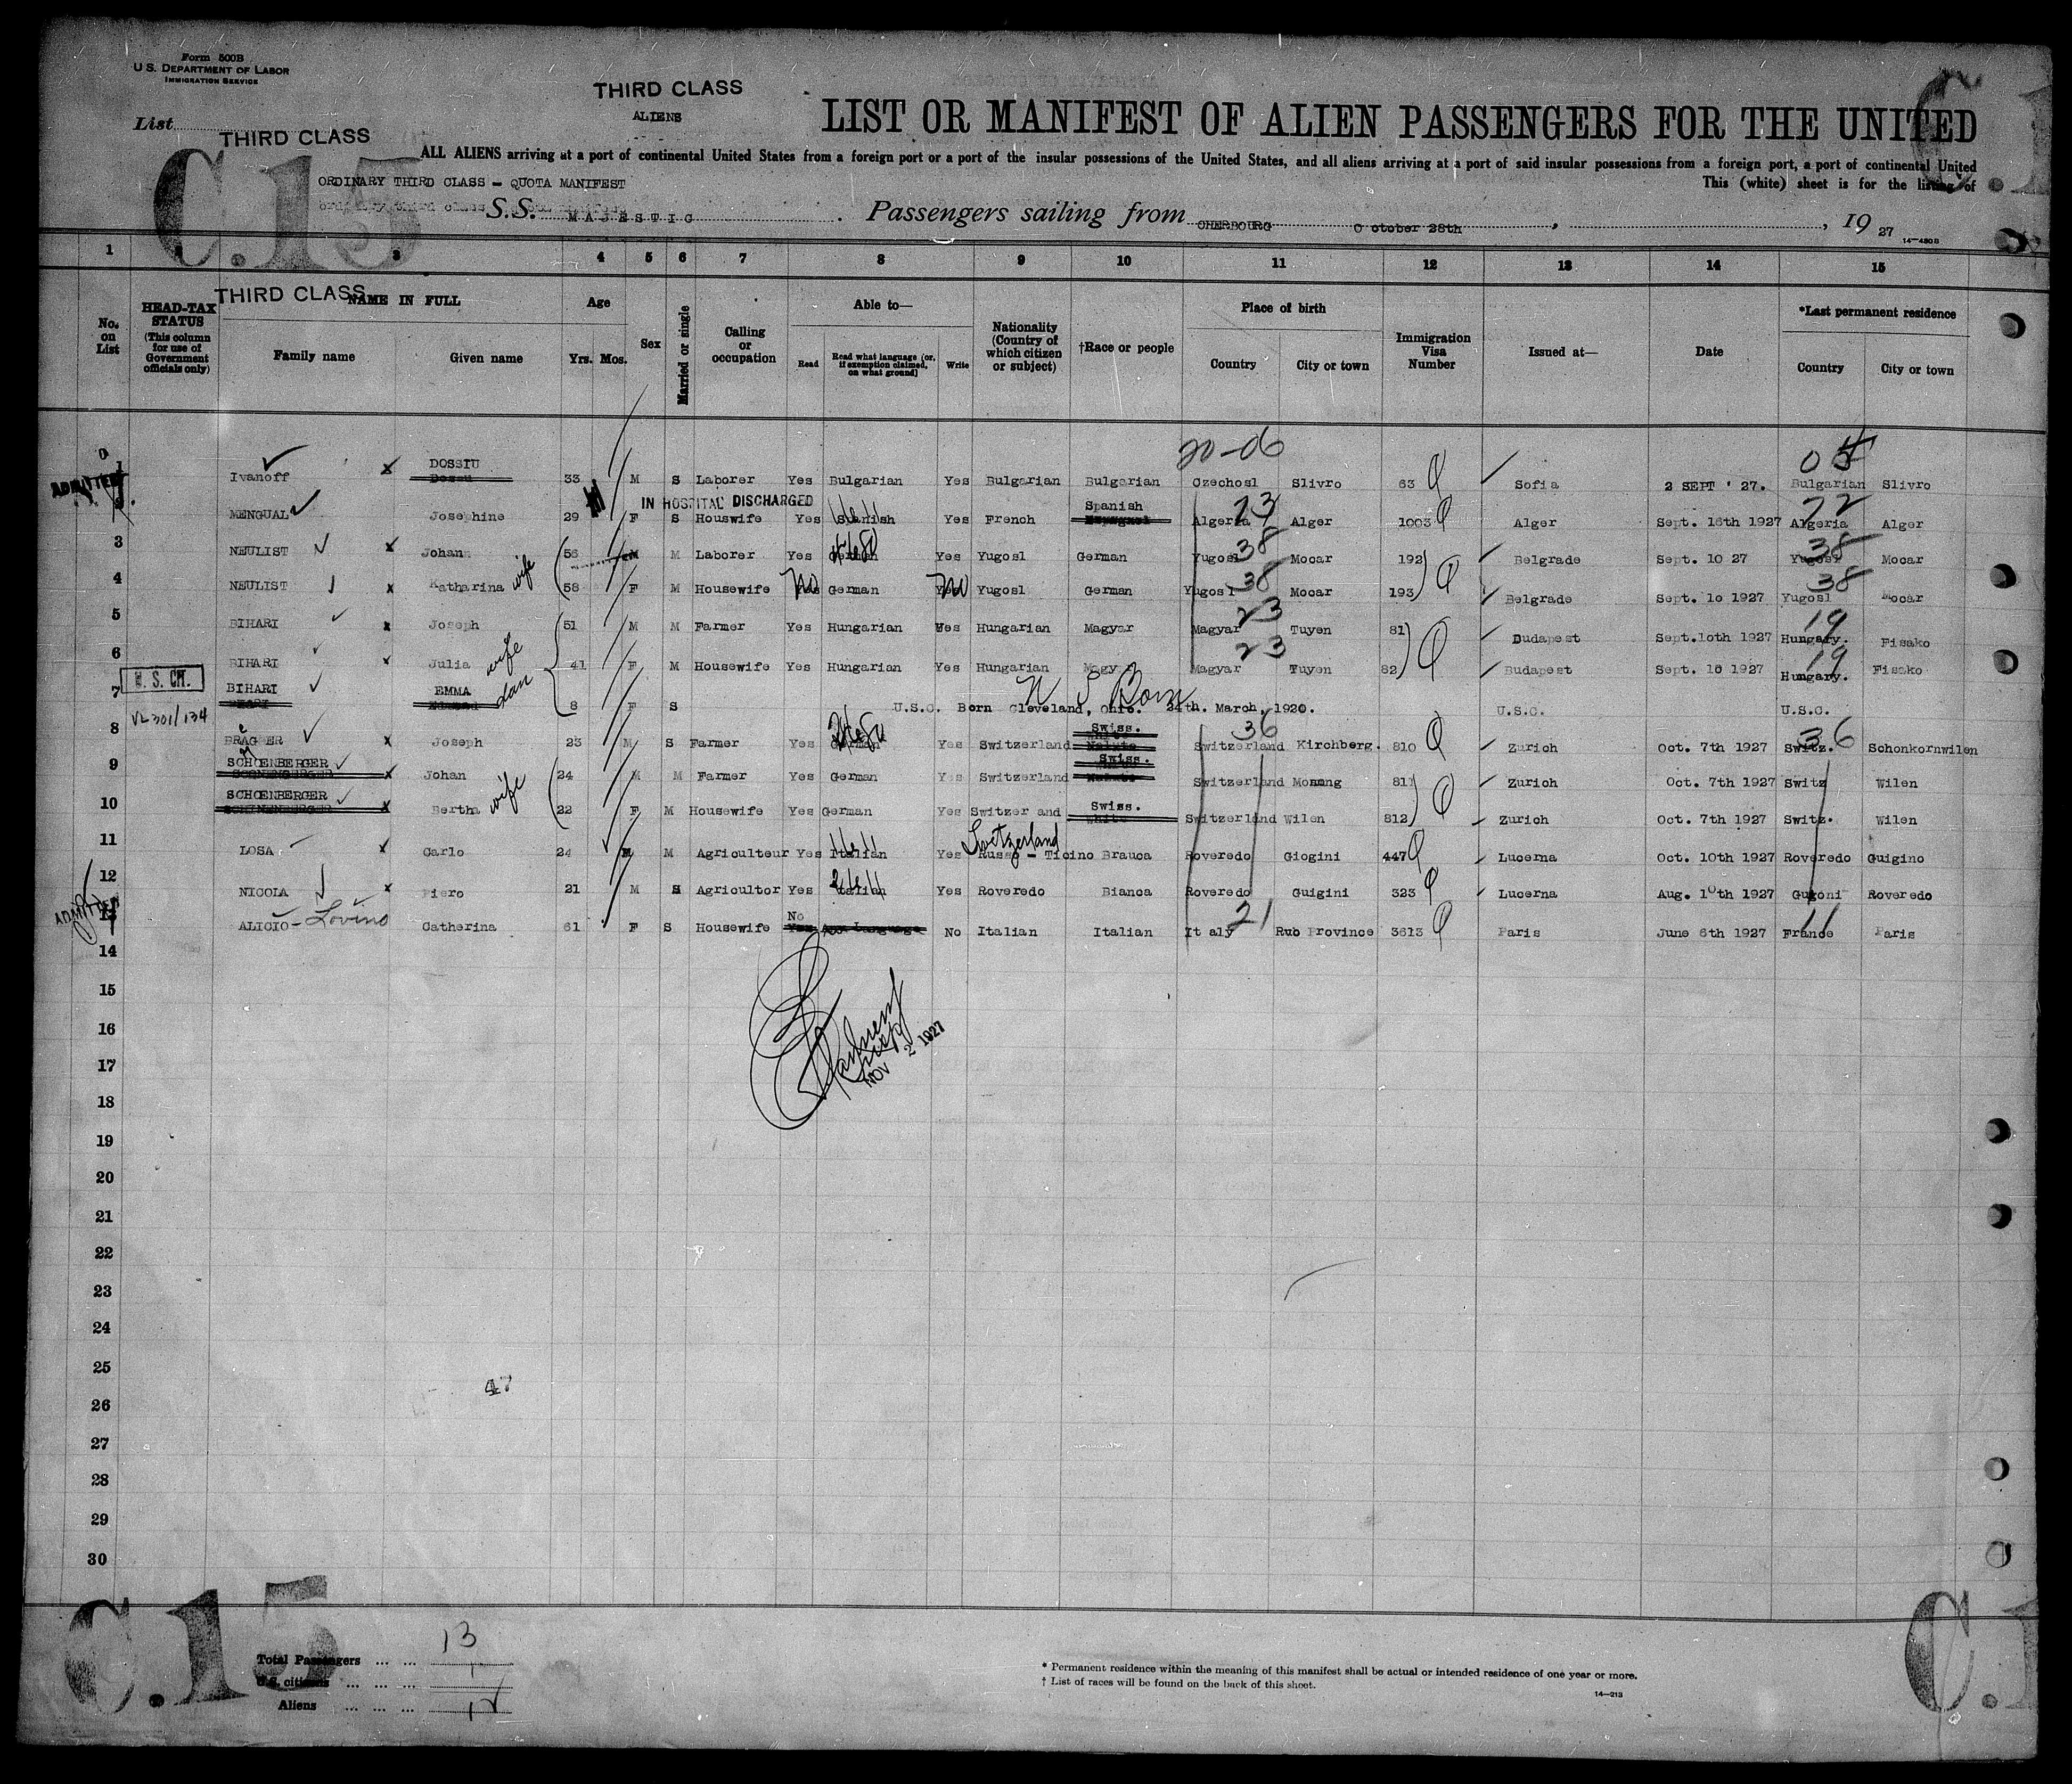 Form 500B
U.S. DEPARTMENT OF LABOR
IMMIGRATION SERVICE
THIRD CLASS
ALIENS
List
THIRD CLASS
LIST OR MANIFEST OF ALIEN PASSENGERS FOR THE UNITED
C.15
ALL ALIENS arriving at a port of continental United States from a foreign port or a port of the insular possessions of the United States, and all aliens arriving at a port of said insular possessions from a foreign port, a port of continental United
ORDINARY THIRD CLASS - QUOTA MANIFEST
This (white) sheet is for the listing of
S.S. MAJESTIC. Passengers sailing from CHERBOURG O ctober 28th, , 19 27
14-480 B
1 3 4 5 6 7 8 9 10 11 12 13 14 15
THIRD CLASS
No. on List
HEAD-TAX STATUS (This column for use of Government officials only)
NAME IN FULL
Family name Given name
Age
Yrs. Mos.
Sex
Married or single
Calling or occupation
Able to—
Read
Read what language (or, if exemption claimed, on what ground)
Write
Nationality (Country of which citizen or subject)
†Race or people
Place of birth
Country City or town
Immigration Visa Number
Issued at—
Date
*Last permanent residence
Country City or town
20-06
ADMITTED
1 Ivanoff x DOSSIU 33 M S Laborer Yes Bulgarian Yes Bulgarian Bulgarian Czechosl Slivro 63 Sofia 2 SEPT ' 27. Bulgarian Slivro
IN HOSPITAL DISCHARGED
MENGUAL Josephine 29 F S Houswife Yes Spanish Yes French Spanish Algeria 23 Alger 1003 Alger Sept. 16th 1927 Algeria Alger
3 NEULIST x Johan 56 M M Laborer Yes German Yes Yugosl German Yugosl 38 Mocar 192 Belgrade Sept. 10 27 Yugosl 38 Mocar
4 NEULIST x Katharina wife 58 F M Housewife No German No Yugosl German Yugosl 38 Mocar 193 Belgrade Sept. 10 1927 Yugosl 38 Mocar
5 BIHARI x Joseph 51 M M Farmer Yes Hungarian Yes Hungarian Magyar Magyar 23 Tuyen 81 Budapest Sept.10th 1927 Hungary. 19 Fisako
6 BIHARI x Julia wife 41 F M Housewife Yes Hungarian Yes Hungarian Magyar Magyar 23 Tuyen 82 Budapest Sept. 10 1927 Hungary. 19 Fisako
U. S. CIT.
7 BIHARI EMMA dau 8 F S U.S.C. Born Cleveland, Ohio. 24th. March, 1920. U.S.C. U.S.C.
U S Born
VL 301/134
8 BRAGGER x Joseph 23 M S Farmer Yes German Yes Switzerland Swiss. Switzerland 36 Kirchberg. 810 Zurich Oct. 7th 1927 Switz. 36 Schonkornwilen
9 SCHOENBERGER x Johan 24 M M Farmer Yes German Yes Switzerland Swiss. Switzerland 811 Zurich Oct. 7th 1927 Switz Wilen
10 SCHOENBERGER x Bertha wife 22 F M Housewife Yes German Yes Switzer and Swiss. Switzerland Wilen 812 Zurich Oct. 7th 1927 Switz. Wilen
Switzerland
11 LOSA x Carlo 24 M M Agriculteur Yes Italian Yes Russo - Ticino Brauca Roveredo Giogini 447 Lucerna Oct. 10th 1927 Roveredo Guigino
12 NICOLA x Piero 21 M S Agricultor Yes Italian Yes Roveredo Bianca Roveredo Guigini 323 Lucerna Aug. 10th 1927 Gugoni Roveredo
ADMITTED
13 ALICIO - Lovino Catherina 61 F S Housewife No No Italian Italian It aly 21 Rub Province 3613 Paris June 6th 1927 France 11 Paris
14
15
16
NOV 2 1927
17
18
19
20
21
22
23
24
25
47
26
27
28
29
30
C.15
Total Passengers ... ... 13
U.S. citizens ... ... ... 1
Aliens ... ... ... 12
* Permanent residence within the meaning of this manifest shall be actual or intended residence of one year or more.
† List of races will be found on the back of this sheet.
14-213
C.1